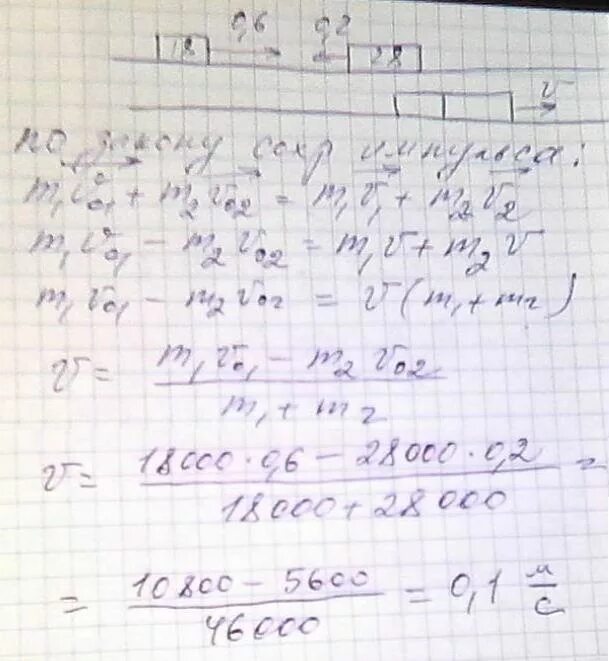 18 0,6 0,2 28
v
по закону сохр импульса:
m₁v₀₁ + m₂v₀₂ = m₁v₁ + m₂v₂
m₁v₀₁ - m₂v₀₂ = m₁v + m₂v
m₁v₀₁ - m₂v₀₂ = v(m₁+m₂)
v = (m₁v₀₁ - m₂v₀₂)/(m₁+m₂)
v = (18000·0,6 - 28000·0,2)/(18000+28000) =
= (10800 - 5600)/46000 = 0,1 м/с